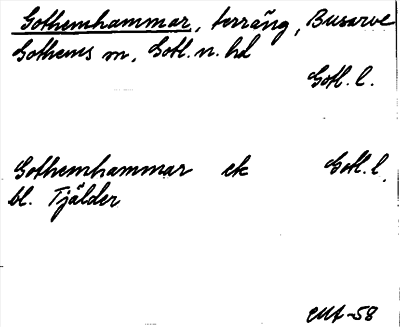 Gothemhammar, terräng, Busarve
Gothems sn, Gotl. n. hd
Gotl. l.
Gothemhammar ek Gotl. l.
bl. Tjälder
-58